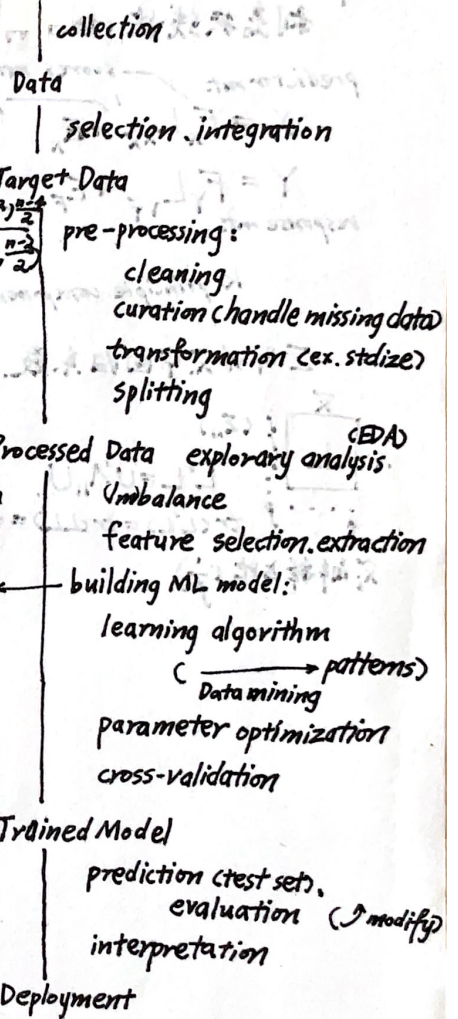 collection
Data
selection、integration
Target Data
pre-processing:
cleaning
curation (handle missing data)
transformation (ex. stdize)
splitting
(EDA)
Processed Data explorary analysis
(imbalance
feature selection.extraction
building ML model:
learning algorithm
( → patterns)
Data mining
parameter optimization
cross-validation
Trained Model
prediction (test set)、
evaluation (⤴ modify)
interpretation
Deployment